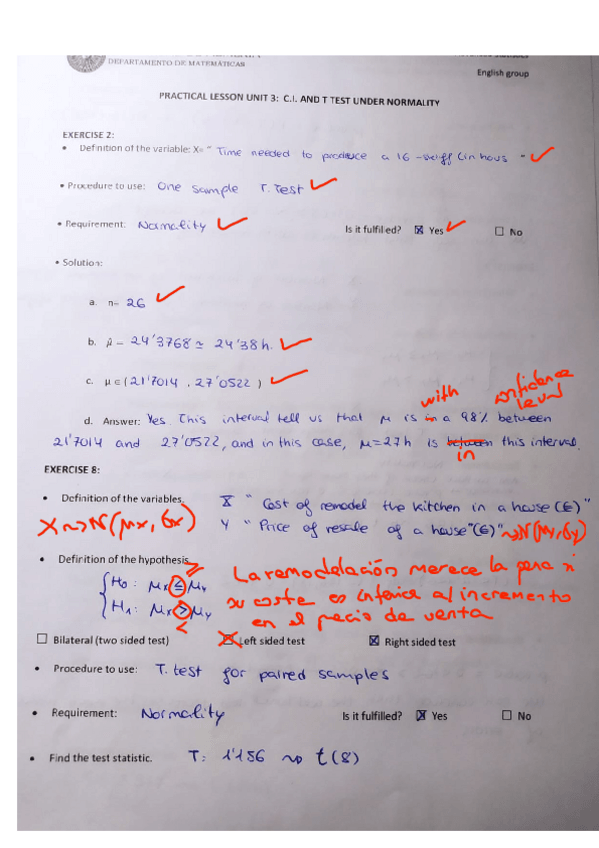 DEPARTAMENTO DE MATEMÁTICAS
English group
PRACTICAL LESSON UNIT 3: C.I. AND T TEST UNDER NORMALITY
EXERCISE 2:
• Definition of the variable: X= " Time needed to produce a 16 - (in hours "
• Procedure to use: One sample T. Test
• Requirement: Normality Is it fulfilled? ☒ Yes ☐ No
• Solution:
a. n= 26
b. μ̂ = 24'3768 ≃ 24'38 h.
c. μ ∈ (21'7014 , 27'0522 )
with confidence level
d. Answer: Yes. This interval tell us that μ is in a 98% between
21'7014 and 27'0522, and in this case, μ=27h is between this interval.
in
EXERCISE 8:
• Definition of the variables. X " Cost of remodel the kitchen in a house (€) "
X ~> N(μx, σx) Y " Price of resale of a house " (€)" ~> N(μy, σy)
• Definition of the hypothesis
≥
H₀: μx ≤ μy La remodelación merece la pena si
H₁: μx > μy su coste es inferior al incremento
< en el precio de venta
☐ Bilateral (two sided test) ☒ Left sided test ☒ Right sided test
• Procedure to use: T. test for paired samples
• Requirement: Normality Is it fulfilled? ☒ Yes ☐ No
• Find the test statistic. T: 1'156 ~> t(8)